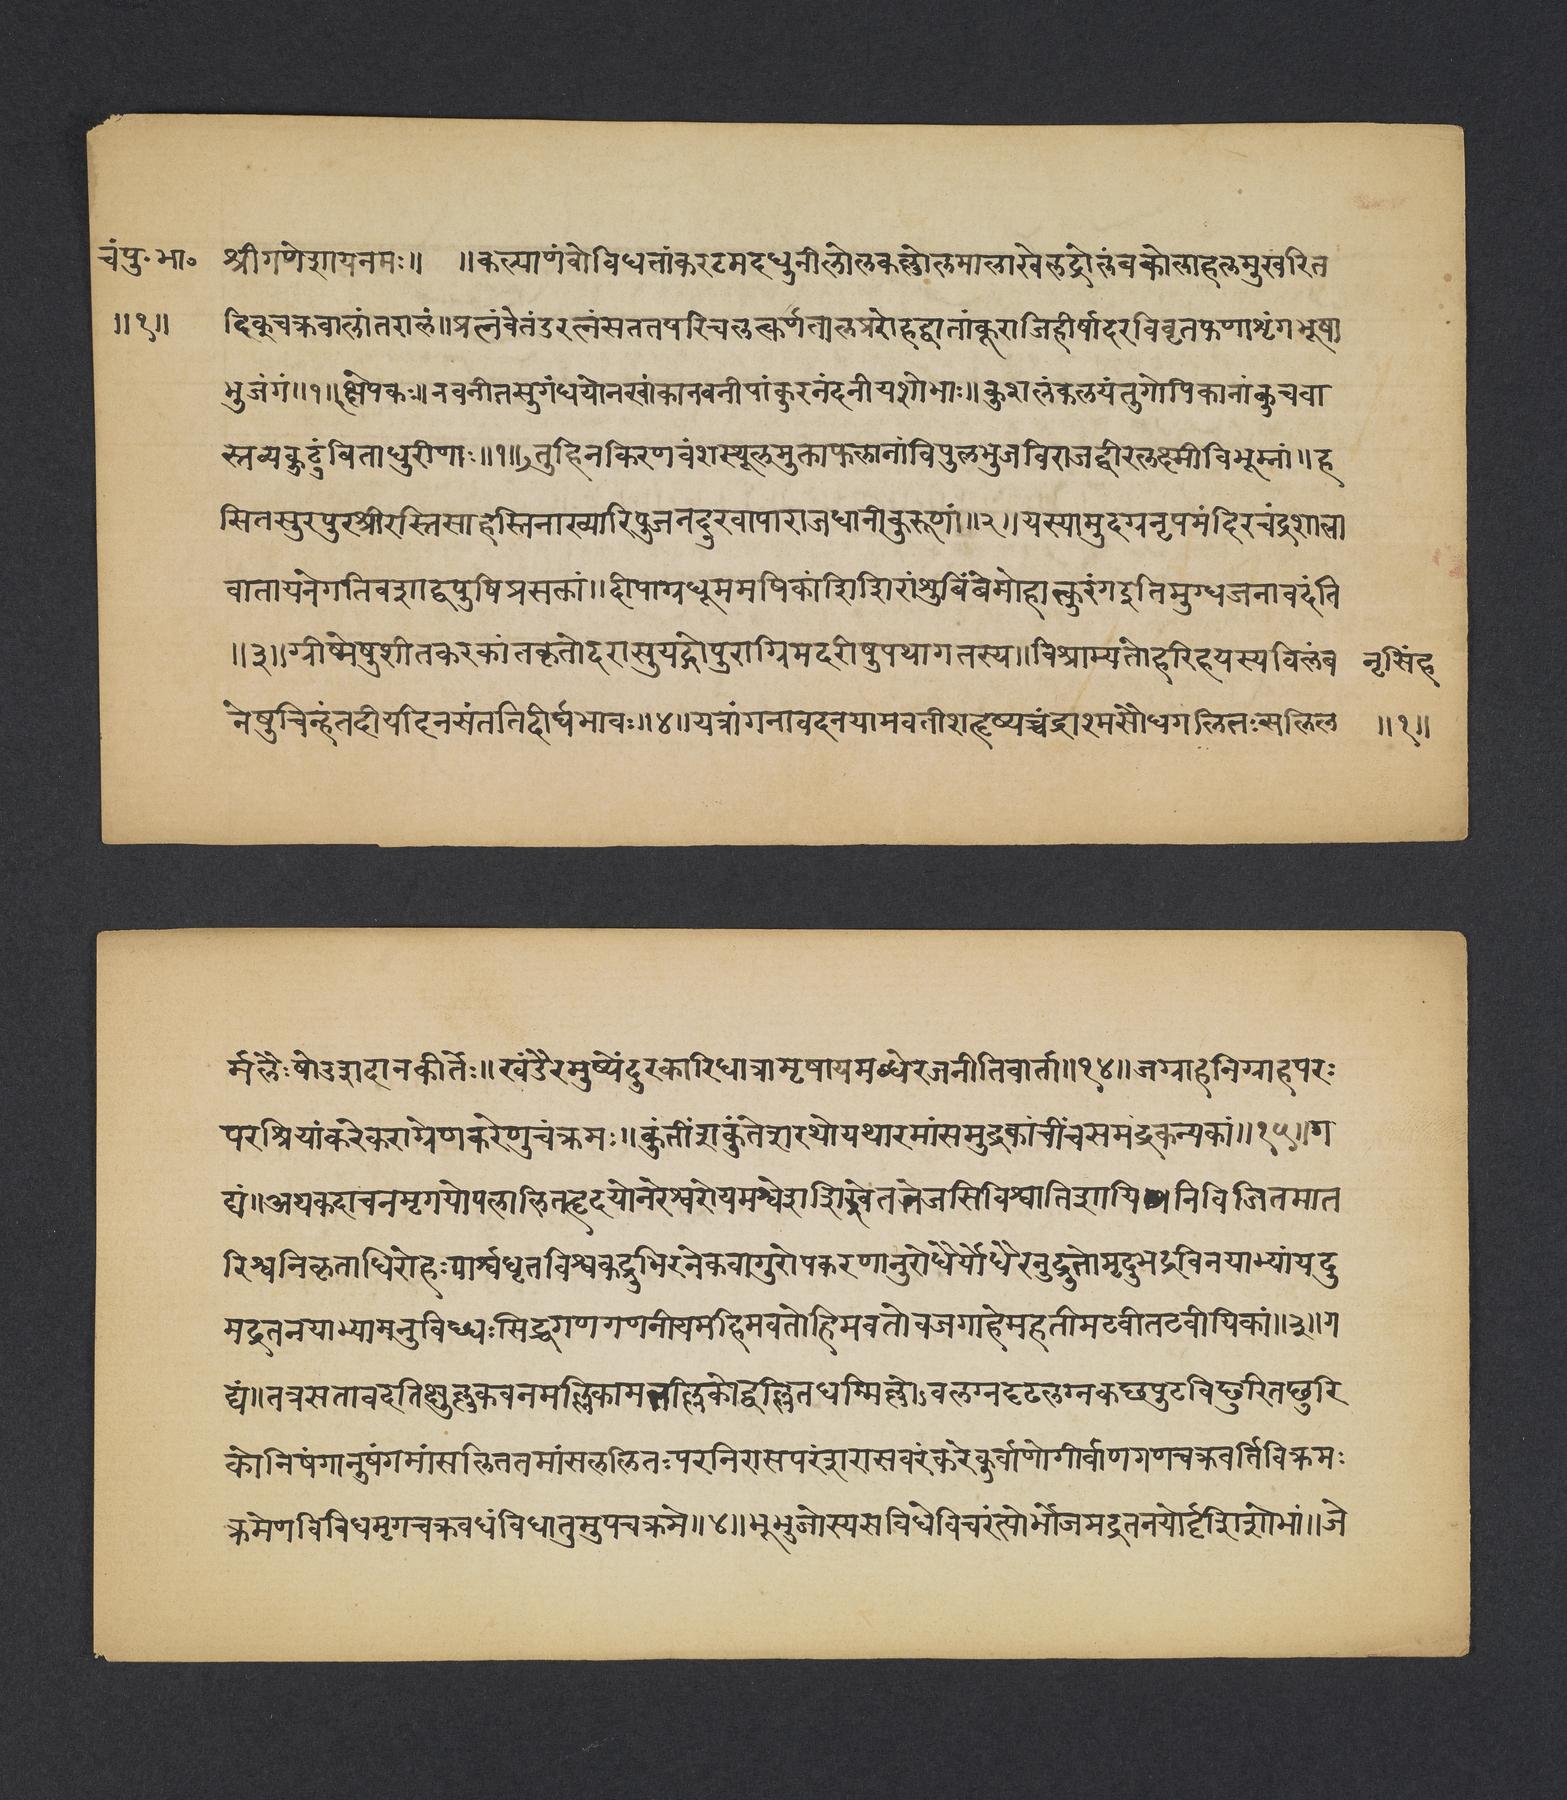 चंपु॰भा॰ श्रीगणेशायनमः॥ ॥कल्याणंवोविधत्तांकरटमदधुनीलोलकल्लोलमालाखेलद्रोलंबकोलाहलमुखरित
॥१॥ दिक्चक्रवालांतरालं॥प्रत्नंवेतंडरत्नंसततपरिचलत्कर्णतालप्ररोहद्वातांकूराजिहीर्षादरविवृतफणाशृंगभूषा
भुजंगं॥१॥क्षेपकः॥नवनीतसुगंधयोनखांकानवनीपांकुरनंदनीयशोभाः॥कुशलंकलयंतुगोपिकानांकुचवा
स्तव्यकुटुंबिताधुरीणाः॥१॥तुहिनकिरणवंशस्थूलमुक्ताफलानांविपुलभुजविराजद्वीरलक्ष्मीविभूम्नां॥ह
सितसुरपुरश्रीरस्तिसाहस्तिनाख्यारिपुजनदुरवापाराजधानीकुरूणां॥२॥यस्यामुदग्रनृपमंदिरचंद्रशाला
वातायनेगतिवशाद्वपुषिप्रसक्तां॥दीपाग्रधूममषिकांशिशिरांशुबिंबेमोहात्कुरंगइतिमुग्धजनावदंति
॥३॥ग्रीष्मेषुशीतकरकांतकृतोदरासुयद्गोपुराग्रिमदरीषुपथागतस्य॥विश्राम्यतोहरिहयस्यविलंब नृसिंह
नेषुचिन्हंतदीयदिनसंततिदीर्घभावः॥४॥यत्रांगनावदनयामवतीशदृष्यच्चंद्राश्मसौधगलितःसलिल ॥१॥
र्मलैःषोडशदानकीर्तेः॥खंडैरमुष्येंदुरकारिधात्रामृषायमब्धेरजनीतिवार्ता॥१४॥जग्राहनिग्राहपरः
परश्रियांकरेकराग्रेणकरेणुचंक्रमः॥कुंतींशकुंतेशरथोयथारमांसमुद्रकांचींचसमद्रकन्यकां॥१५॥ग
द्यं॥अथकदाचनमृगयोपलालितहृदयोनरेश्वरोयमश्वेशशिश्वेततेजसिविश्वातिशायिनिविजितमात
रिश्वनिकृताधिरोहःपार्श्वधृतविश्वकद्रुभिरनेकवागुरोपकरणानुरोधैर्योधैरनुद्रुतोमृदुभद्रविनयाभ्यांयदु
मद्रतनयाभ्यामनुविध्धःसिद्धगणगणनीयमहिमवतोहिमवतोवजगाहेमहतीमटवीतटवीथिकां॥३॥ग
द्यं॥तत्रसतावदतिक्षुल्लकवनमल्लिकामतल्लिकोद्वेल्लितधम्मिल्लोऽवलग्नदृढलग्नकछपुटविछुरितछुरि
कोनिषंगानुषंगमांसलिततमांसललितःपरनिरासपरंशरासवरंकरेकुर्वाणोगीर्वाणगणचक्रवर्तिविक्रमः
क्रमेणविविधमृगचक्रवधंविधातुमुपचक्रमे॥४॥भूभुजोस्यसविधेविचरंत्योर्भोजमद्रतनयोर्दृशिशोभां॥जे